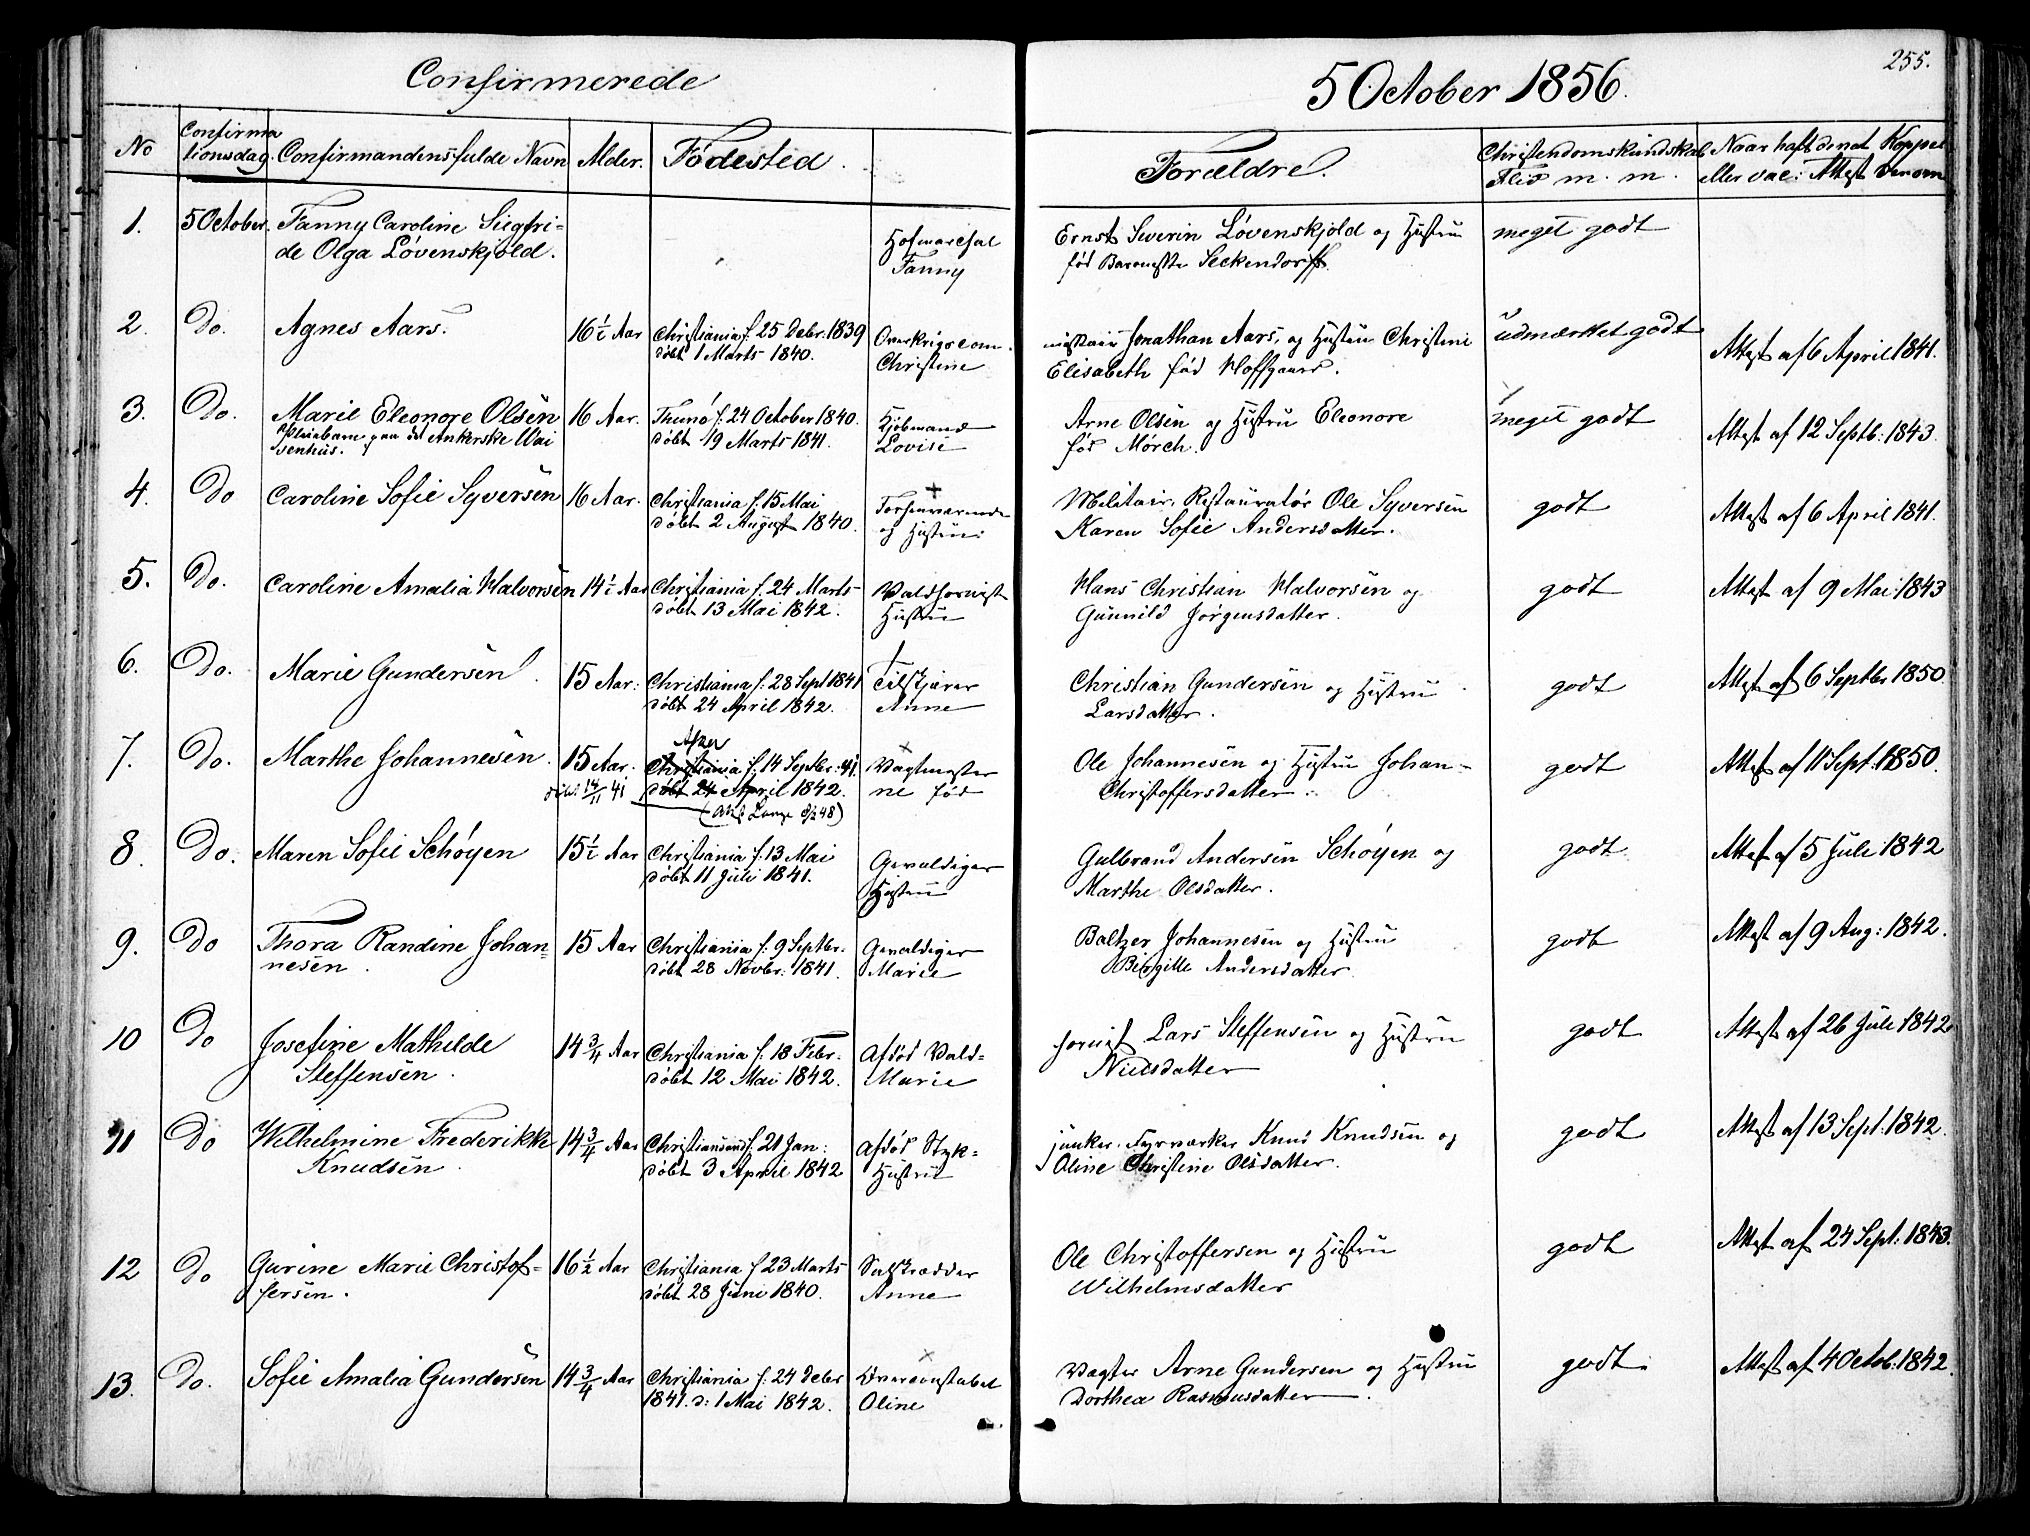 Confirmerede
5 October 1856.
255.
No Confirmationsdag. Confirmandens fulde Navn Alder. Fødested. Forældre. Christendomskundskab Flid m. m. Naar haft de nat. Kopper eller vac: Attest derom
1. 5 October. Fanny Caroline Siegfri- Hofmarchal Ernst Severin Løvenskjold og Hustru meget godt
de Olga Løvenskjold. Fanny født Baronesse Seckendorff.
2. Do. Agnes Aars. 16½ Aar Christiania f. 25 Decbr. 1839 Overkrigscom- missair Jonathan Aars, og Hustru Christine udmærket godt Attest af 6 April 1841.
døbt 1 Marts 1840. Christine Elisabeth født Hoffgaard.
3. Do. Marie Eleonore Olsen 16 Aar. Thunø f. 24 October 1840. Kjøbmand Arne Olsen og Hustru Eleonore meget godt Attest af 12 Septb: 1843.
Pleiebarn paa det Ankerske Wai døbt 19 Marts 1841. Lovise født Mørch.
senhus.
4. Do Caroline Sofie Syversen 16 Aar. Christiania f. 15 Mai Forhenværende Militair. Restauratør Ole Syversen godt Attest af 6 April 1841.
døbt 2 August 1840. og Hustru: Karen Sofie Andersdatter.
5. Do. Caroline Amalia Halvorsen 14½ Aar Christiania f. 24 Marts Valdhornist Hans Christian Halvorsen og godt Attest af 9 Mai 1843
døbt 13 Mai 1842. Hustru Gunnild Jørgensdatter.
6. Do. Marie Gundersen. 15 Aar: Christiania f. 28 Sept 1841 Tilskjærer Christian Gundersen og Hustru godt Attest af 6 Septbr 1850.
døbt 24 April 1842. Anne Larsdatter.
Aker
7. Do. Marthe Johannesen. 15 Aar. Christiania f. 14 Septbr: 41. Vagtmester Ole Johannesen og Hustru Johan- godt Attest af 11 Sept. 1850.
døbt 14/11 41 døbt 24 April 1842. ne født Christoffersdatter.
8. Do. Maren Sofie Schøyen 15½ Aar Christiania f. 13 Mai Gevaldiger Gulbrand Andersen Schøyen og godt Attest af 5 Juli 1842
døbt 11 Juli 1841. Hustru Marthe Olsdatter.
9. Do Thora Randine Johan- 15 Aar Christiania f. 9 Septbr. Gevaldiger Baltzer Johannesen og Hustru godt Attest af 9 Aug: 1842.
nesen. døbt 28 Novbr. 1841. Marie Birgitte Andersdatter.
10 Do Josefine Mathilde 14¾ Aar Christiania f. 18 Febr. Afdød Vald- hornist Lars Steffensen og Hustru godt Attest af 26 Juli 1842
Steffensen. døbt 12 Mai 1842. Marie Nielsdatter
11 Do Wilhelmine Frederikke 14¾ Aar Christiansand f. 21 Jan: Afdød Styk- junker. Fyrværker Knud Knudsen og godt Attest af 13 Sept. 1842.
Knudsen. døbt 3 April 1842 Hustru Oline Christine Olsdatter.
12 Do Gurine Marie Christof- 16½ Aar Christiania f 23 Marts Salskrædder Ole Christoffersen og Hustru godt Attest af 24 Sept. 1843.
fersen. døbt 28 Juni 1840. Anne Wilhelmsdatter
13. Do. Sofie Amalia Gundersen 14¾ Aar Christiania f. 24 Decbr Overconstabel Vagter Arne Gundersen og Hustru godt. Attest af 4 Octob. 1842.
1841. d: 1 Mai 1842. Oline Dorthea Rasmusdatter.